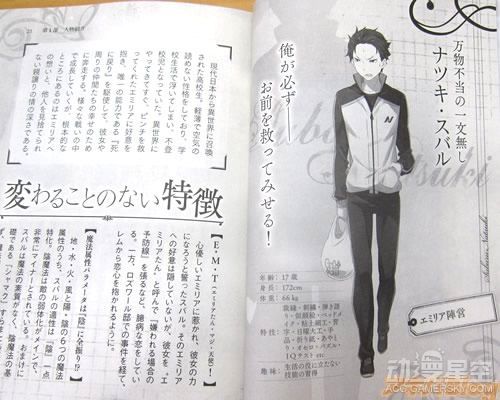 万物不当の一文無し
ナツキ・スバル
俺が必ず――
お前を救ってみせる！
Subaru Natsuki
エミリア陣営
年齢：17歳
身長：172cm
体重：66kg
特技：裁縫・刺繍・弾き語
り・似顔絵・ベッドメ
イク・粘土細工・習
字・日曜大工・手
品・折り紙・あやと
り・オセロ・パズル・
IQテスト etc
趣味：生活の役に立たない
技能の習得
23 第1部 人物紹介
現代日本から異世界に召喚
された高校生。軽薄で空気の
読めない性格をしており、学
校生活で浮いてしまい、不登
校児となっていた。異世界に
やってきてすぐ、ピンチを救
ってくれたエミリアに好意を
抱き、唯一の能力である『死
に戻り』を駆使して、彼女や
周りの仲間たちの幸せのため
に奔走する。様々な戦いの中
で成長していくが、根本的な
ところにあるのはエミリアへ
の想いと、他人を見捨てられ
ない親譲りの情の深さである。
変わることのない特徴
【E・M・T(エミリアたん・マジ・天使)】
心優しいエミリアに惹かれ、彼女の力
になろうと誓ったスバル。そのエミリア
への好意は隠していないが、彼女を『エ
ミリアたん』と呼んで「嫌われる場合の
予防線」を張るなど、臆病な恋をしてい
る。一方、ロズワール邸での事件を経て、
レムから恋心を抱かれるように。
【魔法属性パラメータは『陰』に全振り!?】
地・水・火・風と陽・陰の6つの魔法
属性のうち、スバルの適性は『陰』一点
特化。陰魔法は敵の弱体化がメインで、
非常にマイナーとされている。おまけに
スバルは魔法の素質がなく、陰魔法の基
礎である「シャマク」すら
动漫星空
ACG.GAMERSKY.COM